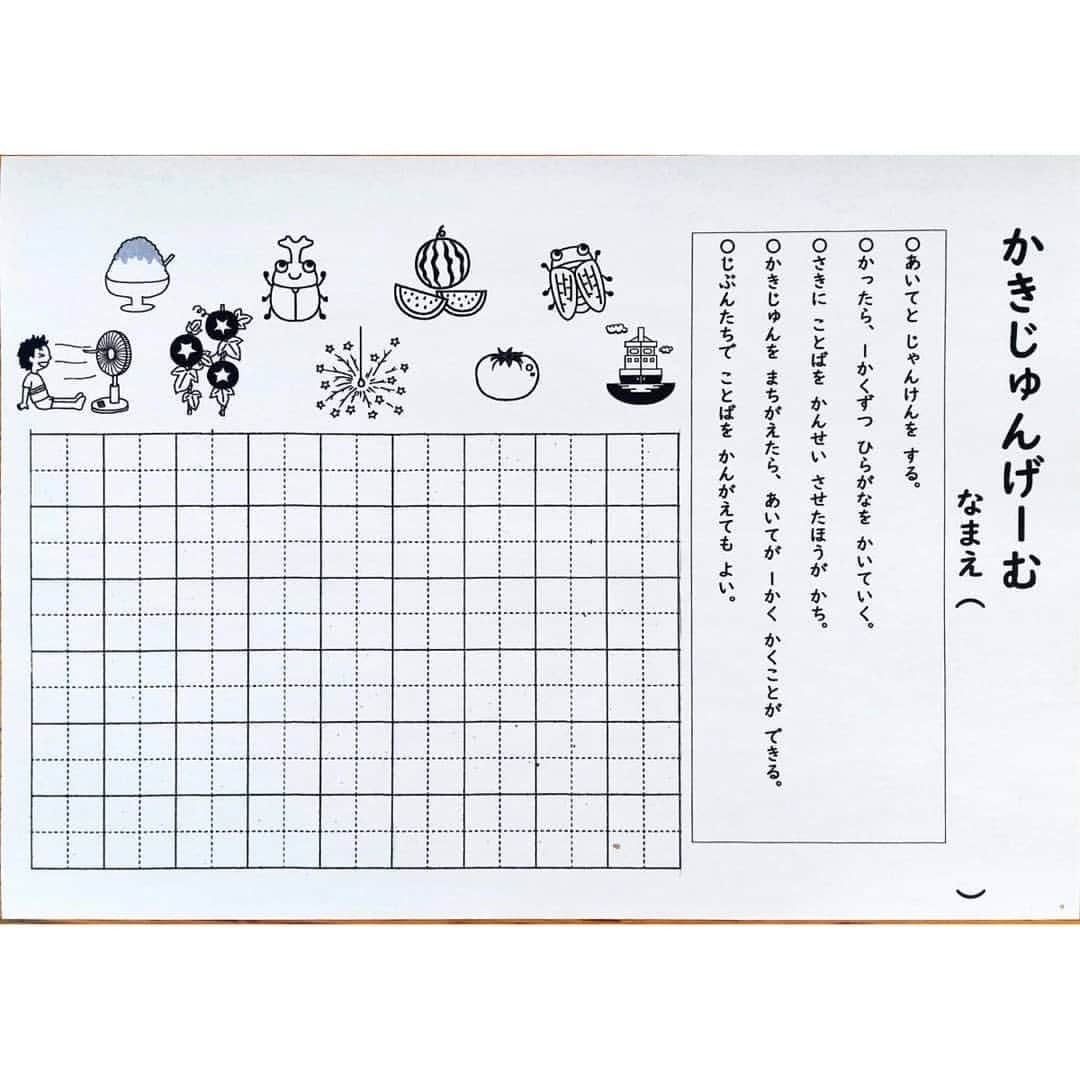 かきじゅんげーむ
なまえ（　　　）
○あいてと じゃんけんを する。
○かったら、一かくずつ ひらがなを かいていく。
○さきに ことばを かんせい させたほうが かち。
○かきじゅんを まちがえたら、あいてが 一かく かくことが できる。
○じぶんたちで ことばを かんがえても よい。